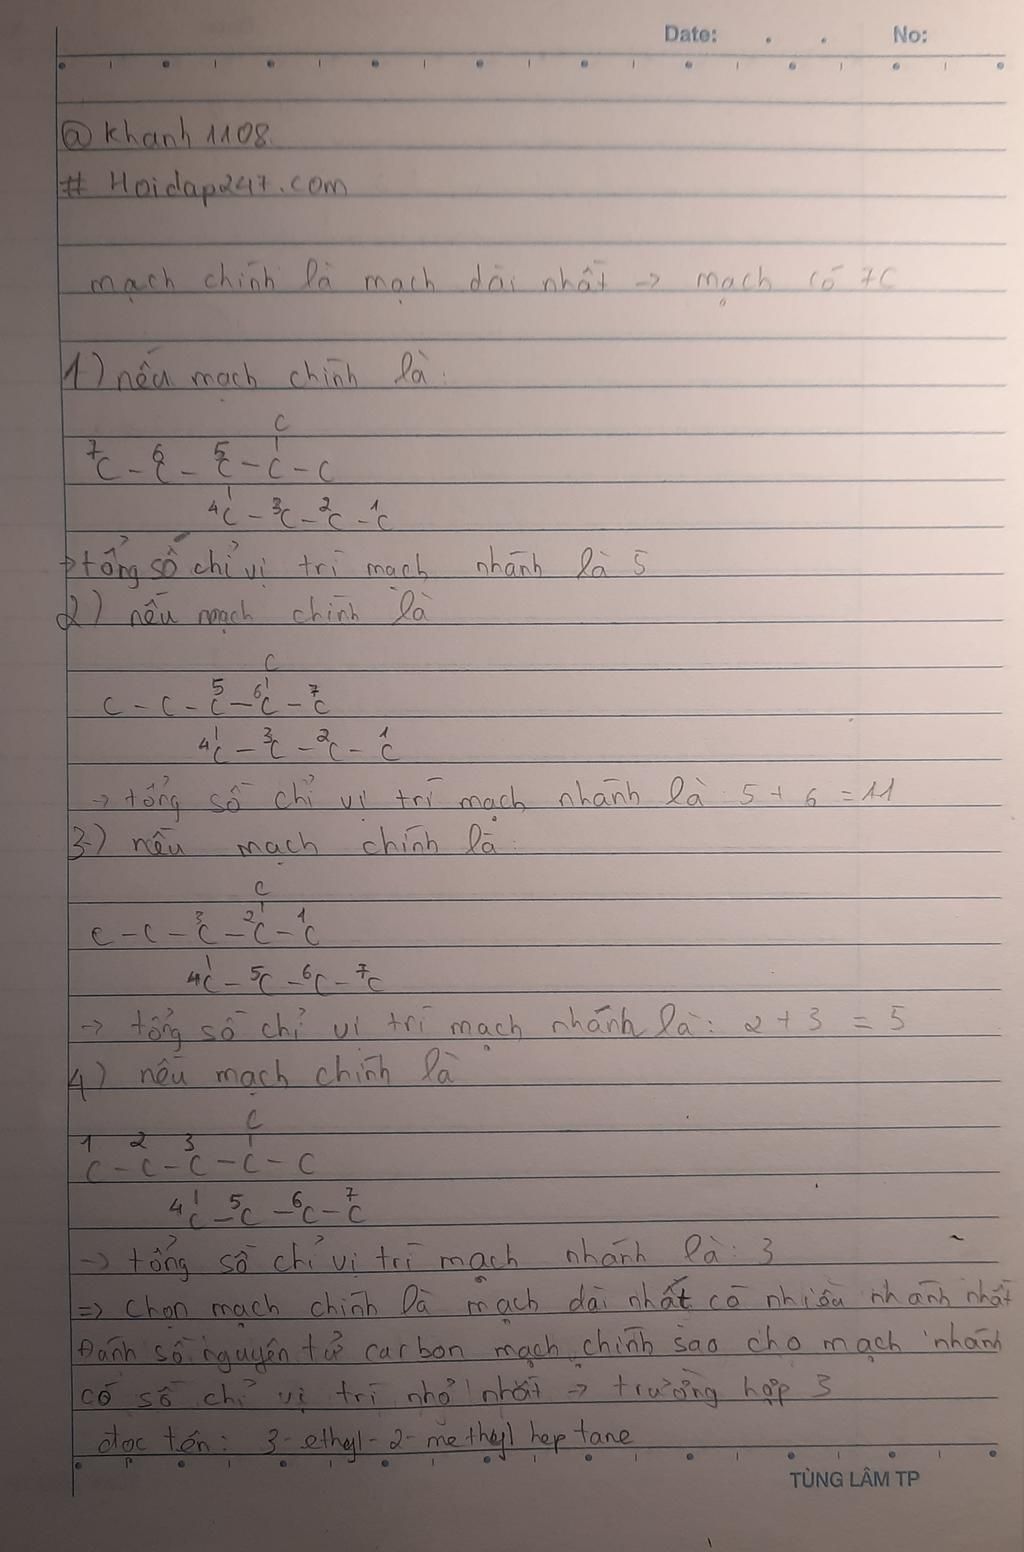 Date: . . No:
@ khanh 1108
# Hoidap247.com
mạch chính là mạch dài nhất → mạch có 7C
1) nếu mạch chính là:
C
⁷C - ⁶C - ⁵C - C - C
⁴C - ³C - ²C - ¹C
→ tổng số chỉ vị trí mạch nhánh là 5
2) nếu mạch chính là
C
C - C - ⁵C - ⁶C - ⁷C
⁴C - ³C - ²C - ¹C
→ tổng số chỉ vị trí mạch nhánh là 5 + 6 = 11
3) nếu mạch chính là
C
C - C - ³C - ²C - ¹C
⁴C - ⁵C - ⁶C - ⁷C
→ tổng số chỉ vị trí mạch nhánh là: 2 + 3 = 5
4) nếu mạch chính là
C
¹C - ²C - ³C - C - C
⁴C - ⁵C - ⁶C - ⁷C
→ tổng số chỉ vị trí mạch nhánh là: 3
=> chọn mạch chính là mạch dài nhất có nhiều nhánh nhất
Đánh số nguyên tử carbon mạch chính sao cho mạch nhánh
có số chỉ vị trí nhỏ nhất → trường hợp 3
đọc tên: 3-ethyl-2-methyl heptane
TÙNG LÂM TP